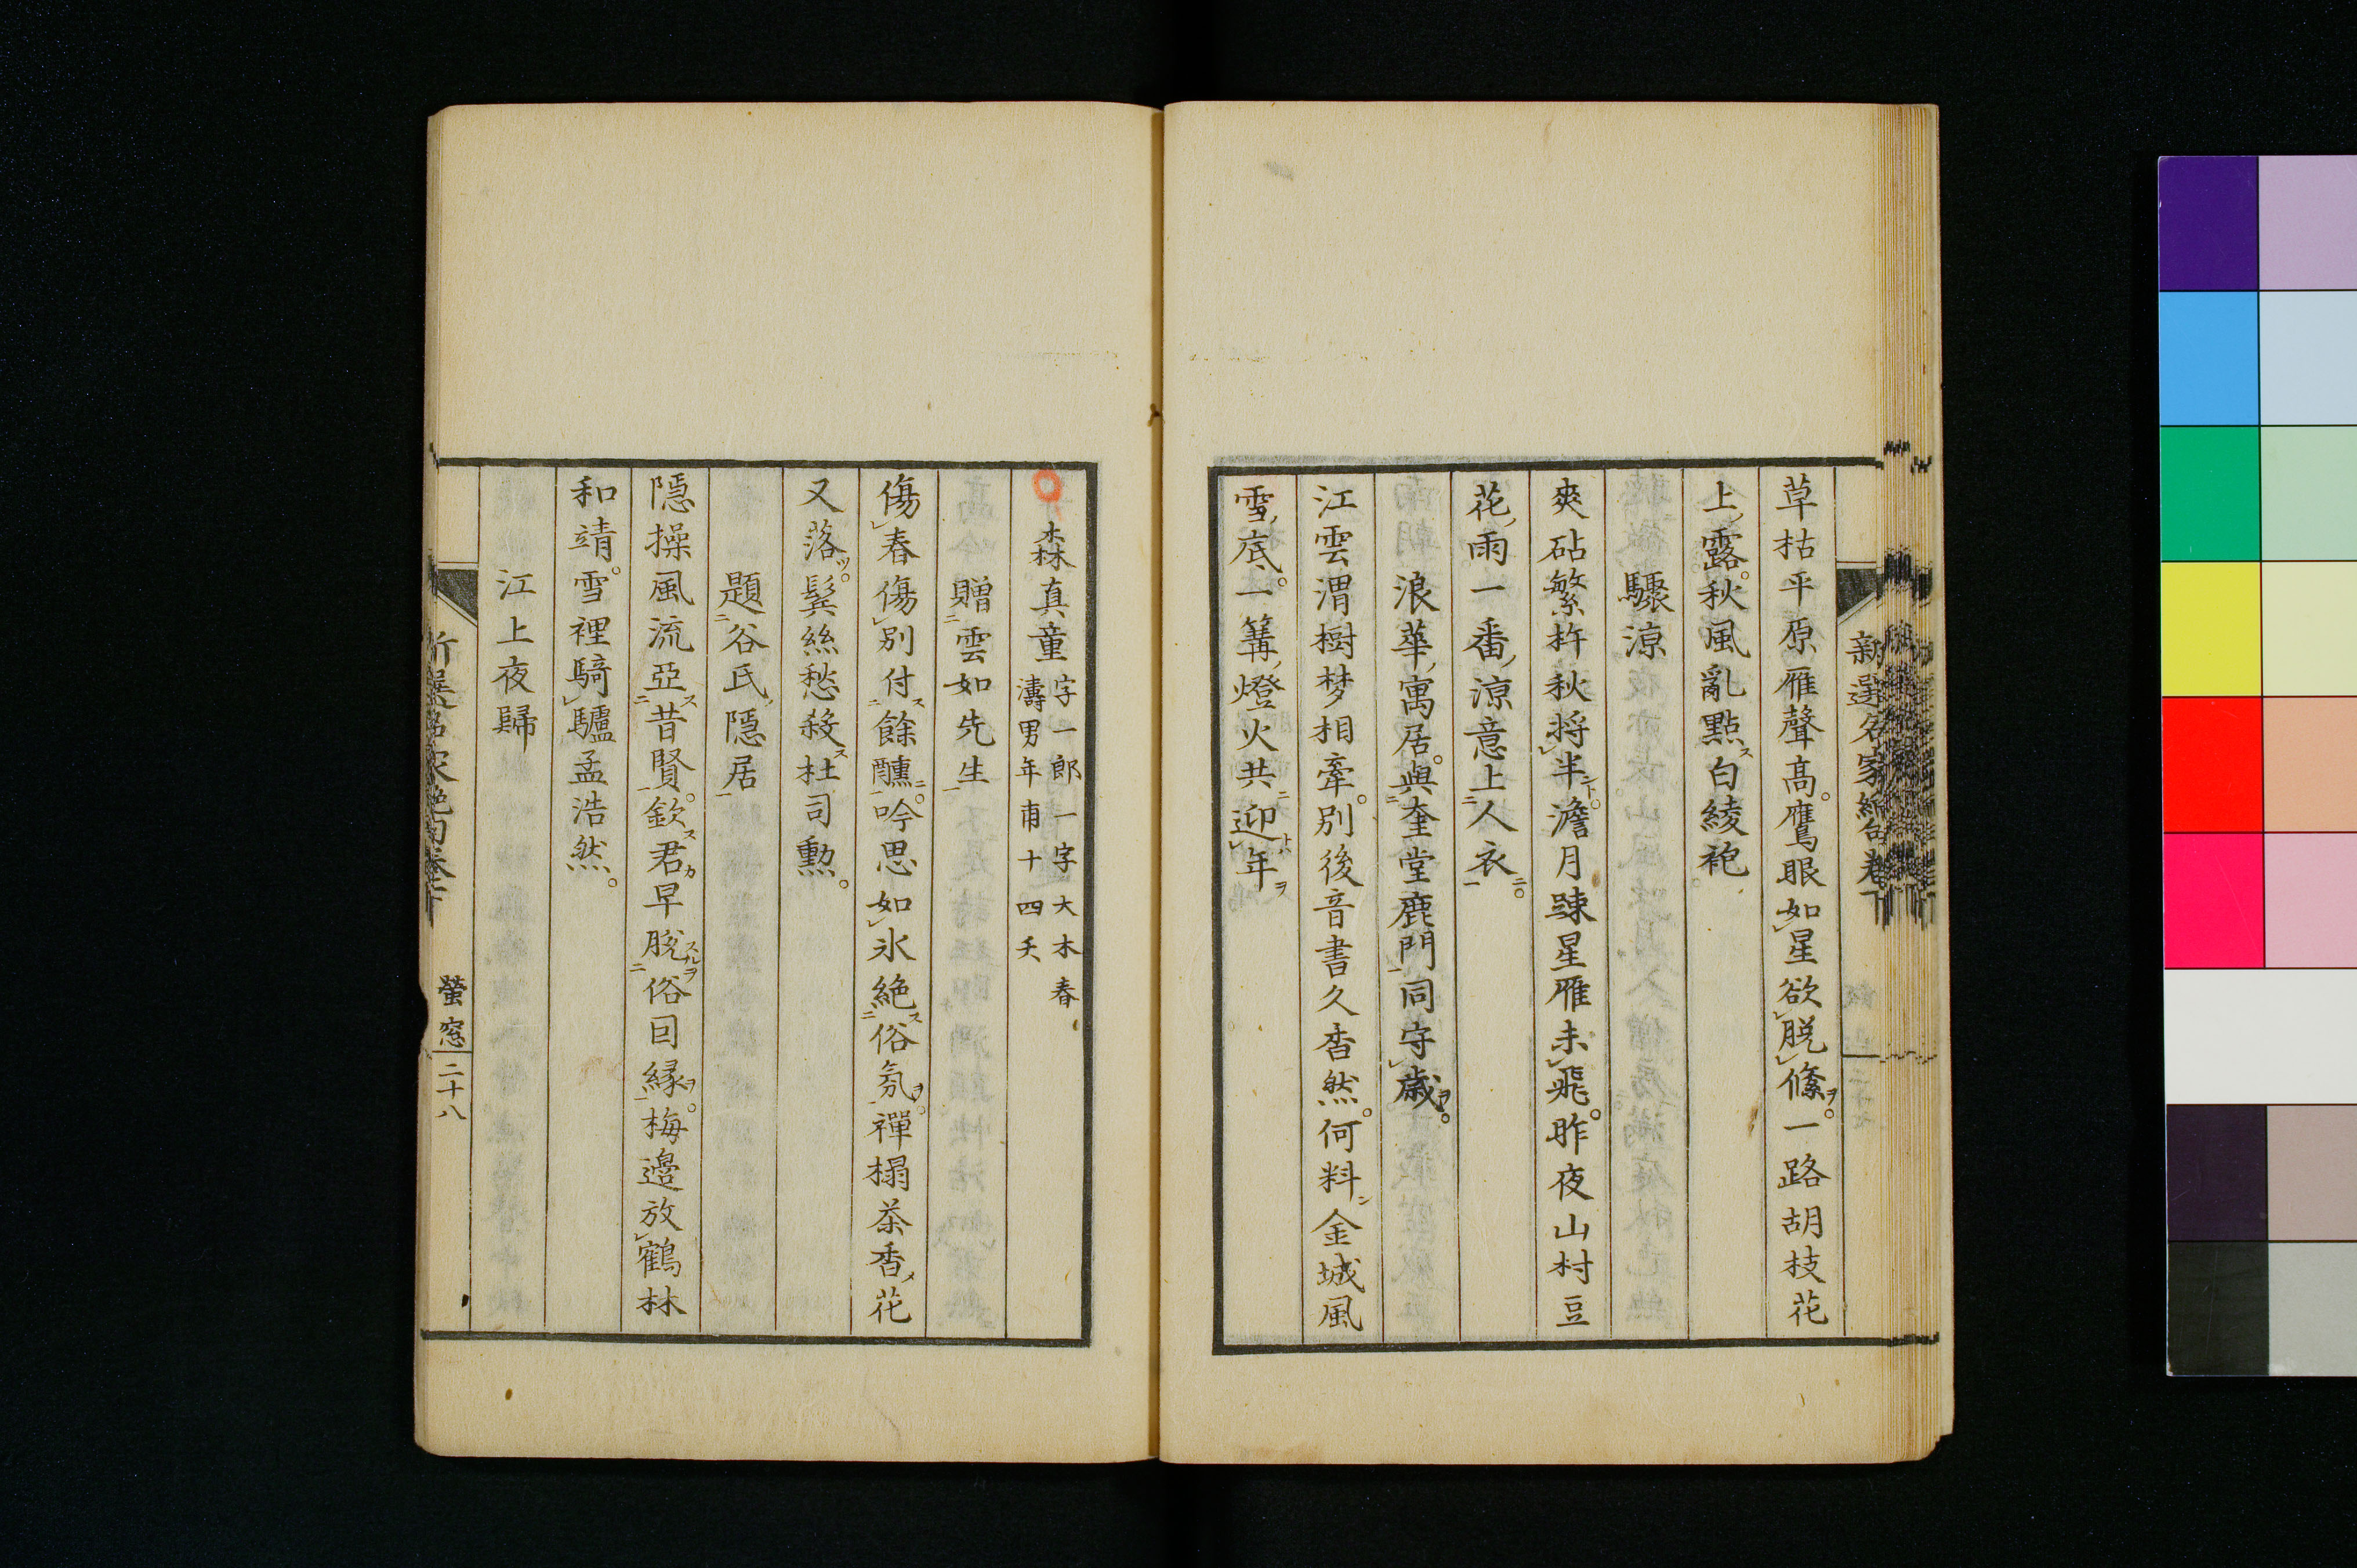 新選名家絶句卷下
草枯平原雁聲高。鷹眼如星欲脱絛ヲ。一路胡枝花
上ノ露。秋風亂點ス白綾袍
驟涼
爽砧繁杵秋将半ナント。澹月踈星雁未飛。昨夜山村豆
花ノ雨一番ノ涼意上人衣ニ。
浪華ノ寓居。與奎堂鹿門同守歳ヲ。
江雲渭樹梦相牽。別後音書久杳然。何料ン金城風
雪ノ底。一篝ノ燈火共ニ迎ントハ年ヲ
森真童 字一郎一字大木春
濤男年甫十四夭
贈雲如先生
傷春傷別付ス餘醺ニ。吟思如氷絶ス俗氛ヲ。禪榻茶香ノ花
又落ツ。鬂絲愁殺ス杜司勲。
題谷氏ノ隱居
隱操風流亞ス昔賢。欽ス君カ早脱スルヲ俗因縁ヲ。梅邉放鶴林
和靖。雪裡騎驢孟浩然。
江上夜歸
新選名家絶句卷下
螢窓
二十八